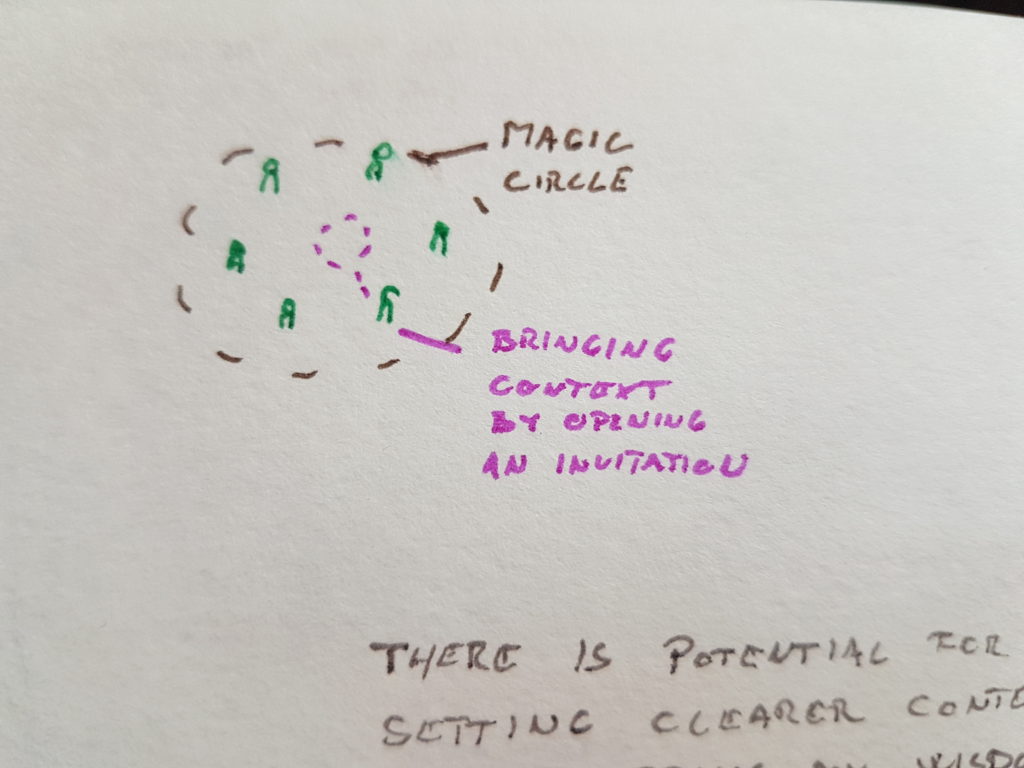 MAGIC
CIRCLE
BRINGING
CONTEXT
BY OPENING
AN INVITATION
THERE IS POTENTIAL FOR
SETTING CLEARER